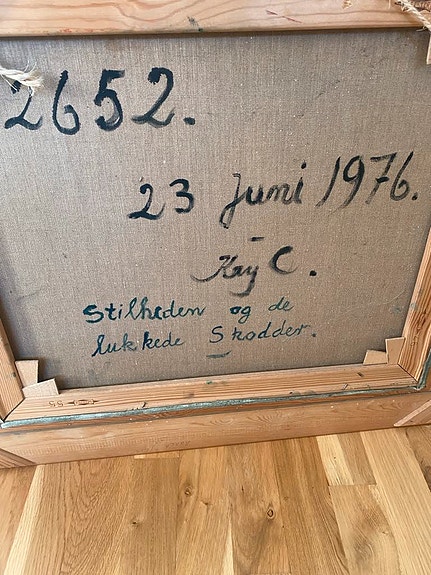 2652.
23 Juni 1976.
Kay C.
Stilheden og de
lukkede Skodder.